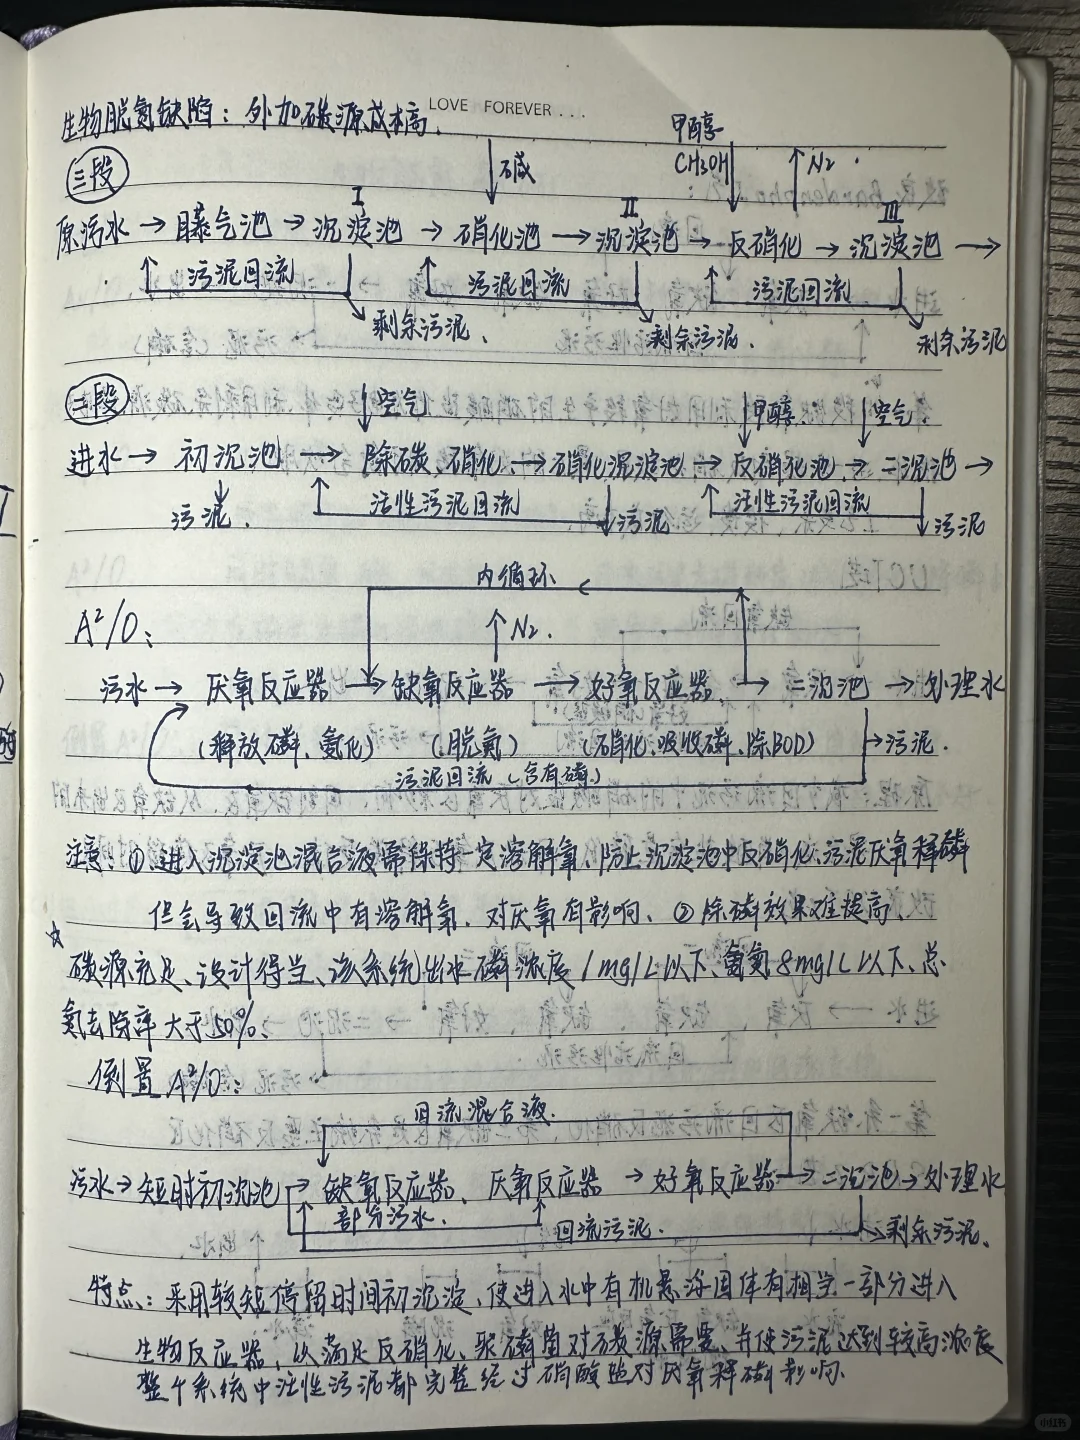 LOVE FOREVER...
生物脱氮缺陷：外加碳源成本高.
甲醇
三段
碱
CH3OH
N2
I
II
III
原污水→曝气池→沉淀池→硝化池→沉淀池→反硝化→沉淀池→
污泥回流
污泥回流
污泥回流
剩余污泥.
剩余污泥.
剩余污泥
二段
空气
甲醇.
空气.
进水→初沉池→除碳、硝化→硝化沉淀池→反硝化池→二沉池→
污泥.
活性污泥回流
污泥
活性污泥回流
污泥
内循环
A²/O：
N2.
污水→厌氧反应器→缺氧反应器→好氧反应器→二沉池→处理水
(释放磷、氨化)
(脱氮)
(硝化、吸收磷、除BOD)
污泥.
污泥回流(含有磷)
注意：①进入沉淀池混合液需保持一定溶解氧、防止沉淀池中反硝化、污泥厌氧释磷
但会导致回流中有溶解氧．对厌氧有影响、②除磷效果难提高、
☆
碳源充足、设计得当、该系统出水磷浓度1mg/L以下、氨氮8mg/L以下、总
氮去除率大于50%、
倒置A²/O：
回流混合液.
污水→短时初沉池→缺氧反应器、厌氧反应器→好氧反应器→二沉池→处理水
部分污水.
回流污泥.
剩余污泥、
特点：采用较短停留时间初沉淀、使进入水中有机悬浮固体有相当一部分进入
生物反应器，以满足反硝化、聚磷菌对碳源需要、并使污泥达到较高浓度
整个系统中活性污泥都完整经过硝酸盐对厌氧释磷影响.